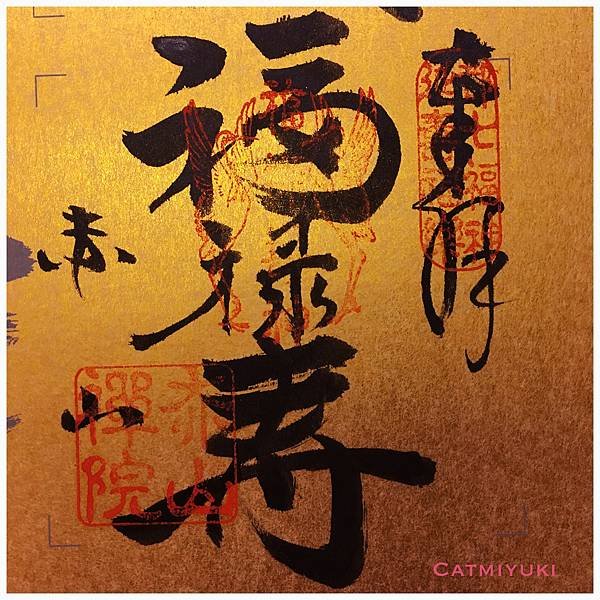 奉拝
七福神
福禄寿
赤山
赤山
禪院
CATMIYUKI